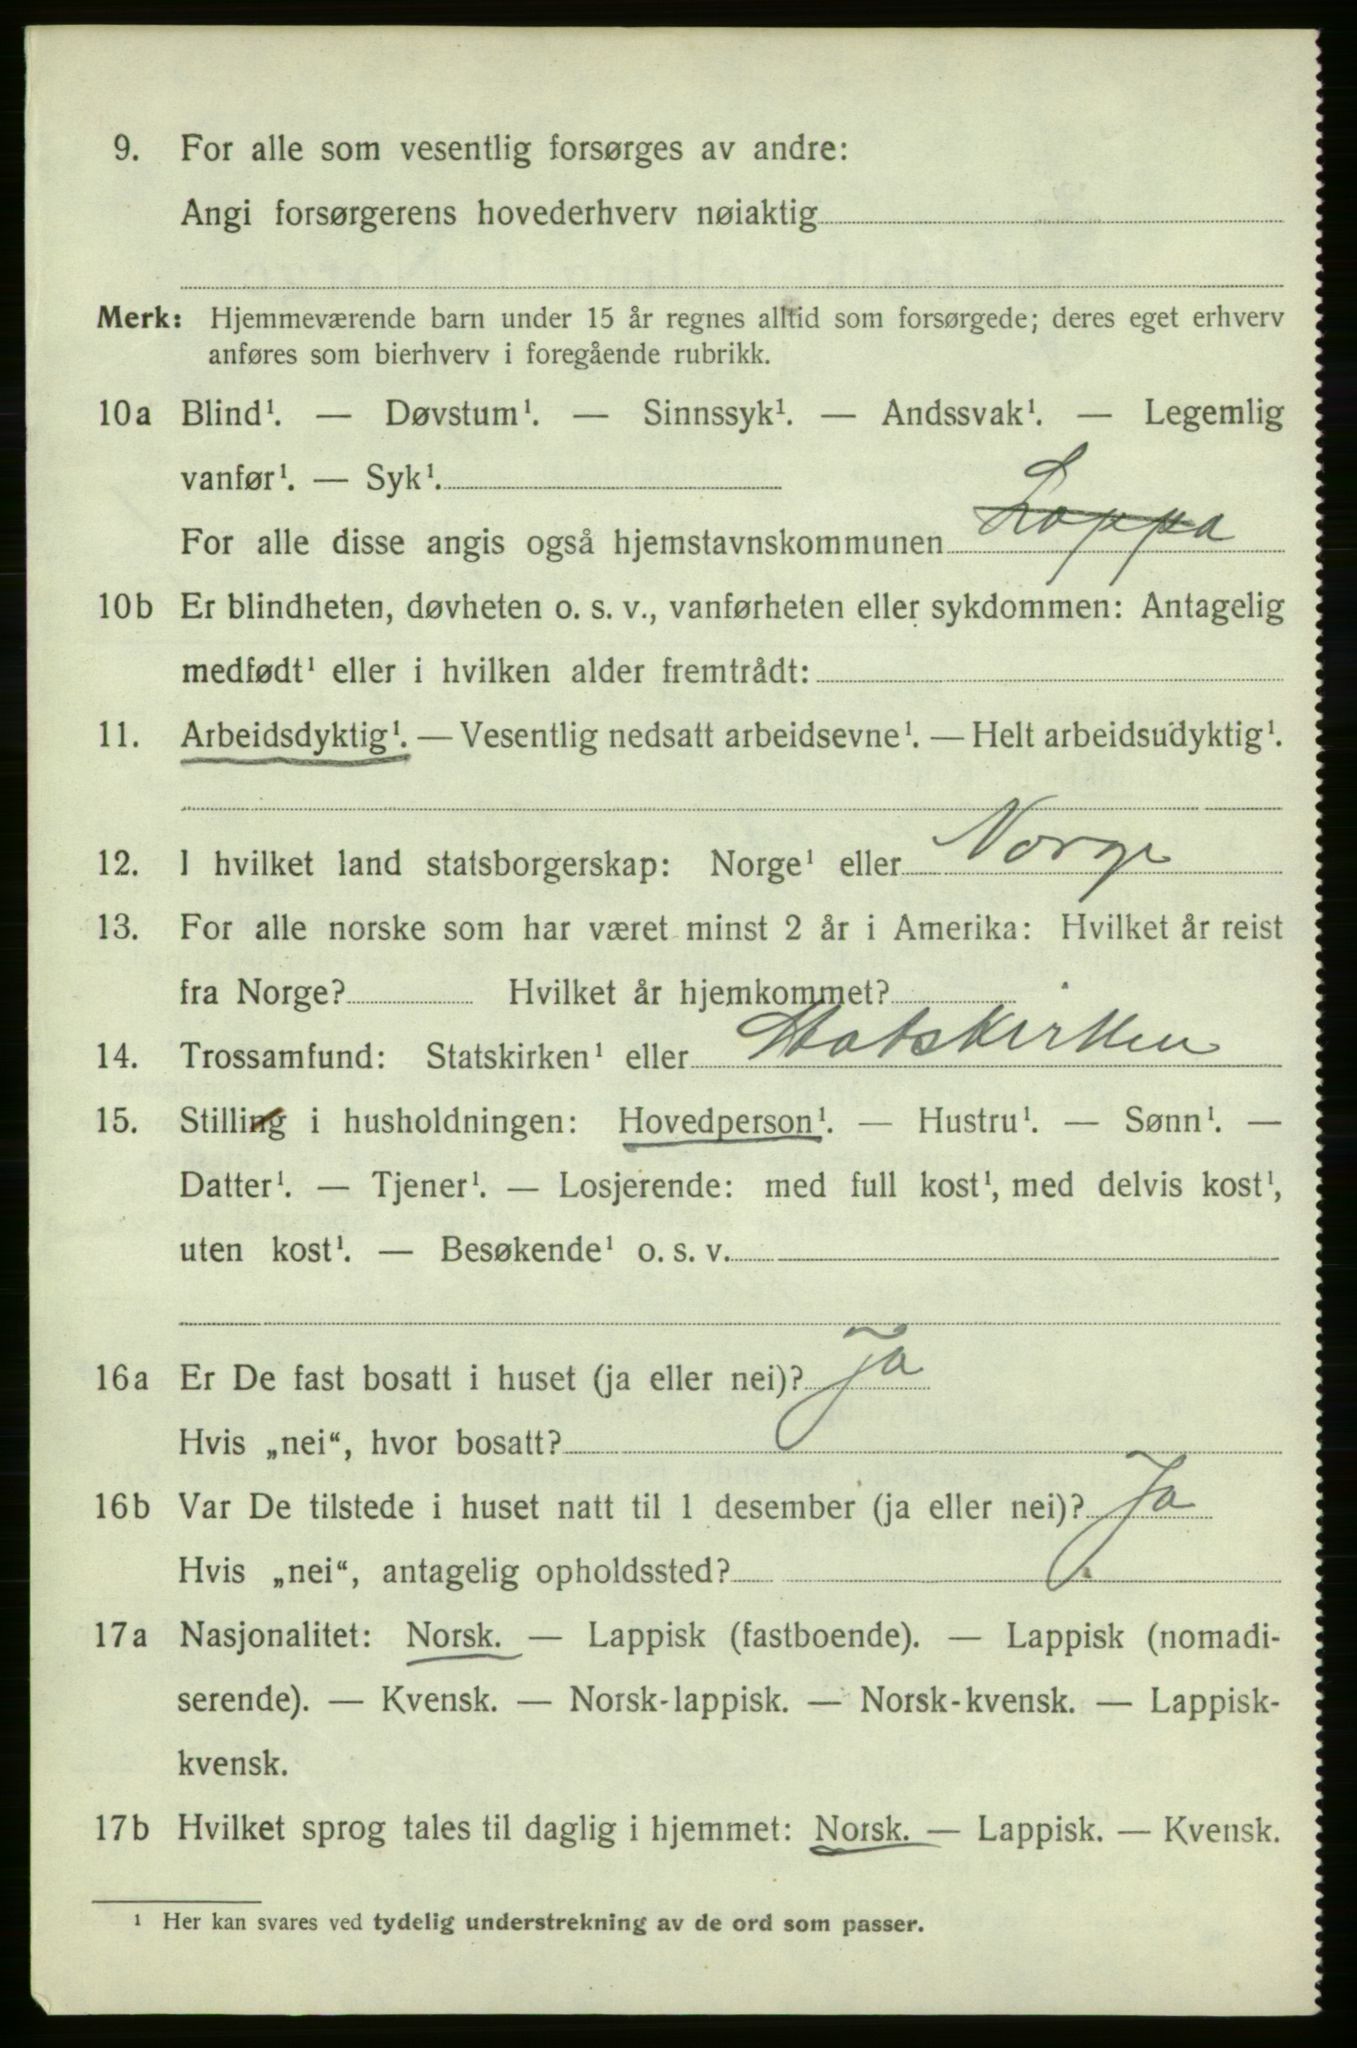 9. For alle som vesentlig forsørges av andre:
Angi forsørgerens hovederhverv nøiaktig
Merk: Hjemmeværende barn under 15 år regnes alltid som forsørgede; deres eget erhverv
anføres som bierhverv i foregående rubrikk.
10a Blind¹. — Døvstum¹. — Sinnssyk¹. — Andssvak¹. — Legemlig
vanfør¹. — Syk¹.
For alle disse angis også hjemstavnskommunen Loppa
10b Er blindheten, døvheten o. s. v., vanførheten eller sykdommen: Antagelig
medfødt¹ eller i hvilken alder fremtrådt:
11. Arbeidsdyktig¹. — Vesentlig nedsatt arbeidsevne¹. — Helt arbeidsudyktig¹.
12. I hvilket land statsborgerskap: Norge¹ eller Norge
13. For alle norske som har været minst 2 år i Amerika: Hvilket år reist
fra Norge? Hvilket år hjemkommet?
14. Trossamfund: Statskirken¹ eller Statskirken
15. Stilling i husholdningen: Hovedperson¹. — Hustru¹. — Sønn¹. —
Datter¹. — Tjener¹. — Losjerende: med full kost¹, med delvis kost¹,
uten kost¹. — Besøkende¹ o. s. v.
16a Er De fast bosatt i huset (ja eller nei)? Ja
Hvis „nei“, hvor bosatt?
16b Var De tilstede i huset natt til 1 desember (ja eller nei)? Ja
Hvis „nei“, antagelig opholdssted?
17a Nasjonalitet: Norsk. — Lappisk (fastboende). — Lappisk (nomadi-
serende). — Kvensk. — Norsk-lappisk. — Norsk-kvensk. — Lappisk-
kvensk.
17b Hvilket sprog tales til daglig i hjemmet: Norsk. — Lappisk. — Kvensk.
¹ Her kan svares ved tydelig understrekning av de ord som passer.